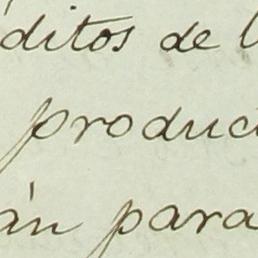 ditos de l
produc
án para